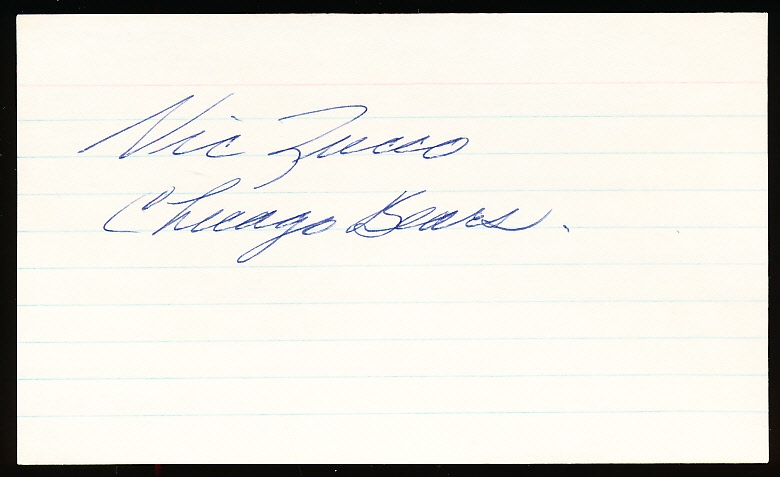 Vic Zucco
Chicago Bears.